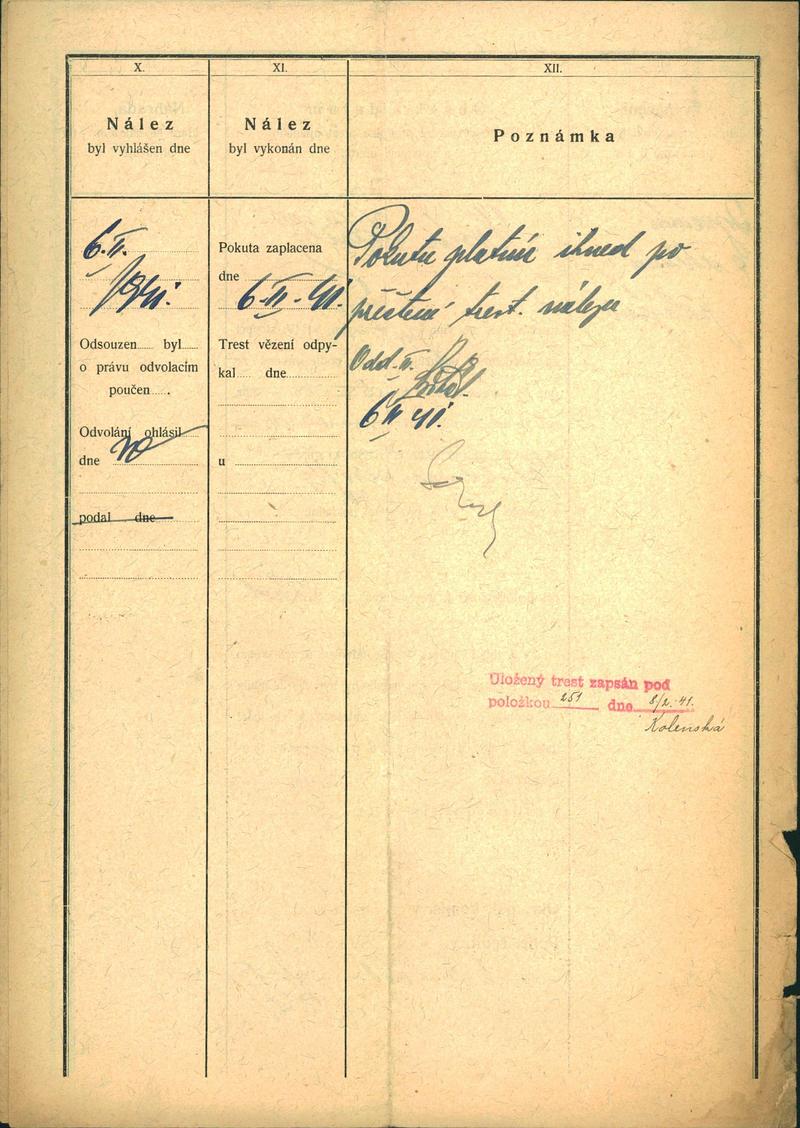 X.
Nález
byl vyhlášen dne
6. II.
1941.
Odsouzen byl
o právu odvolacím
poučen .
Odvolání ohlásil
dne
podal dne
XI.
Nález
byl vykonán dne
Pokuta zaplacena
dne
6. II. 41.
Trest vězení odpy-
kal dne
u
XII.
Poznámka
Pokutu ihned po
trest. nálezu
Odd. II.
6 II 41.
Uložený trest zapsán pod
položkou 251 dne 8/2. 41.
Kolenská